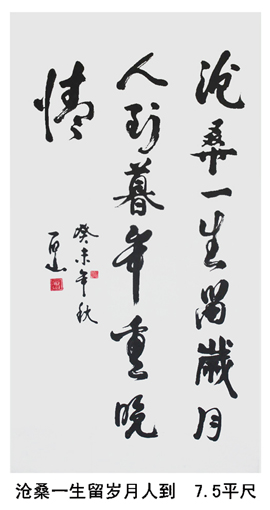 沧桑一生留歲月
人到暮年重晚
情
癸未年秋
沧桑一生留岁月人到 7.5平尺